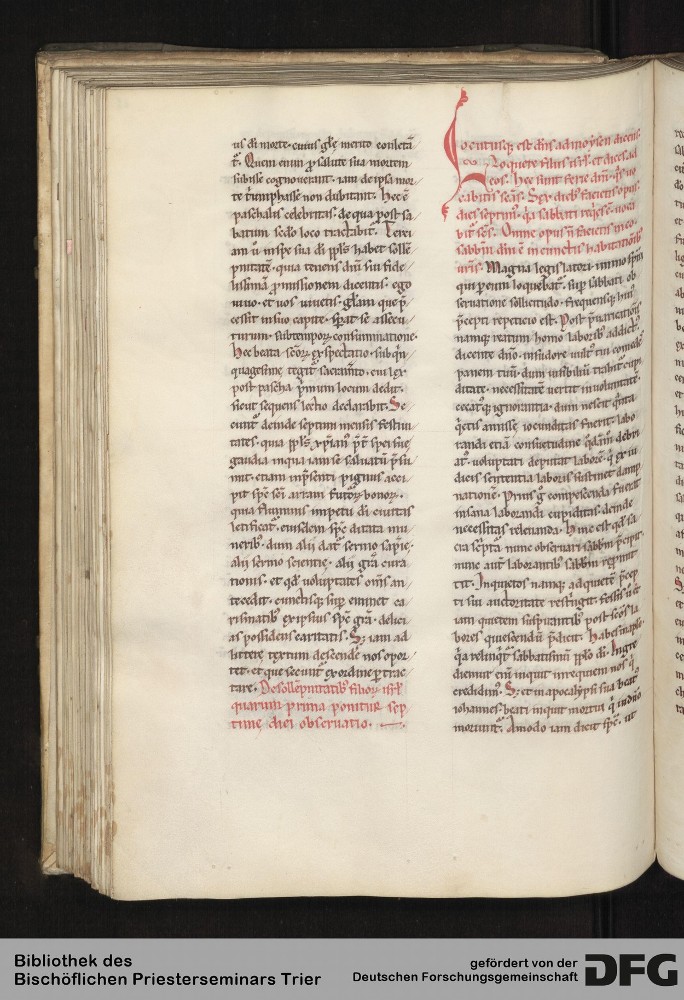 us di morte · cuius glę merito conletā
t̄. Quem enim ꝓ salute sua mortem
subisse cognouerant. iam de ipsa mor
te triumphasse non dubitant. Hec ē
paschalis celebritas. de qua post sa
batum sedo loco tractabit.
am ū inspe sua di ppls habet solle
pnitatē. quia tenens dn̄i sui fide
lissimā ꝓmissionem dicentis. ego
uiuo. et vos viuetis. glam que p̄
cessit in suo capite. sperat se assecu
turum. sub tempore consummatione.
Hec beata scōꝝ expectatio. sub qn
quagesime tegit sacramto. cui lex
post pascha pͥmum locum dedit.
sicut sequens lectio declarabit. Se
cunt deinde septimi mensis festiui
tates. quia ppls xpianꝰ p̄t spei sue
gaudia in qua iam se saluatū p̄su
mit. etiam in p̄senti pignus acci
pit spē sci arram futuroꝝ bonoꝝ.
quia fluminis impetu di ciuitas
letificat. eiusdem spē ditata mu
neribꝰ. dum alii dat sermo sapię.
alii sermo scientię. alii gra cura
tionis. et qd voluptates oms an
tecedit. cunctisqꝫ suꝑ eminet ca
rismatibꝰ ex ipsius spē gra. delici
as possidens caritatis. Sꝫ iam ad
litterę textum descende nos opor
tet. et que secunt ex ordine ꝑ trac
tare. De sollēpnitatibꝰ filioꝝ isrl
quarum prima ponitur sep
timę diei obseruatio.
Locutusqꝫ est dn̄s ad moysen dicens
Loquere filiis isrl. et dices ad
eos. Hec sunt ferie dn̄i. qs uo
cabitis scās. Sex diebꝰ facietis opus.
dies septimꝰ. qa sabbati requies ē. uoca
bit scs. Omne opus n̄ facietis in eo.
sabbm dn̄i ē in cunctis habitationibꝰ
uris. Magna legislatori. immo spm
qui ꝑ eum loquebat. suꝑ sabbati ob
seruatione sollicitudo. frequensqꝫ huiꝰ
p̄cepti repeticio est. Post p̄uaricationis
namqꝫ reatum homo laboribꝰ addictꝰ.
dicente dn̄o. in sudore uultꝰ tui comedes
panem tuū. dum uisibiliū trahit cupi
ditate. necessitatē vertit in voluntatē.
cecatꝰqꝫ ignorantia. dum nescit qnta
qetis amisse iocunditas fuerit. labo
randi etiā consuetudine qdam debri
at. voluptati deputat laborē. q ex iu
dicis sententia laboris sustinet damp
nationē. Prius g compescenda fuerat
insana laborandi cupiditas. deinde
necessitas releuanda. Hinc est qd sa
cra scptā nunc obseruari sabbm p̄cipit.
nunc aut laborantibꝰ sabbm repmit
tit. Inquietos namqꝫ ad quietē p̄cep
ti sui auctoritate restringit. fessis ū et
iam quietem suspirantibꝰ post scos la
bores quiescendū p̄dicit. Habes in apło.
qa relinqt sabbatismū pplo di. Ingre
diemur enī inquit in requiem nos q
credidimꝰ. Sꝫ et in apocalypsi sua beatꝰ
iohannes. beati inquit mortui q in dn̄o
moriunt. Amodo iam dicit spē. ut
Bibliothek des
Bischöflichen Priesterseminars Trier
gefördert von der
Deutschen Forschungsgemeinschaft DFG